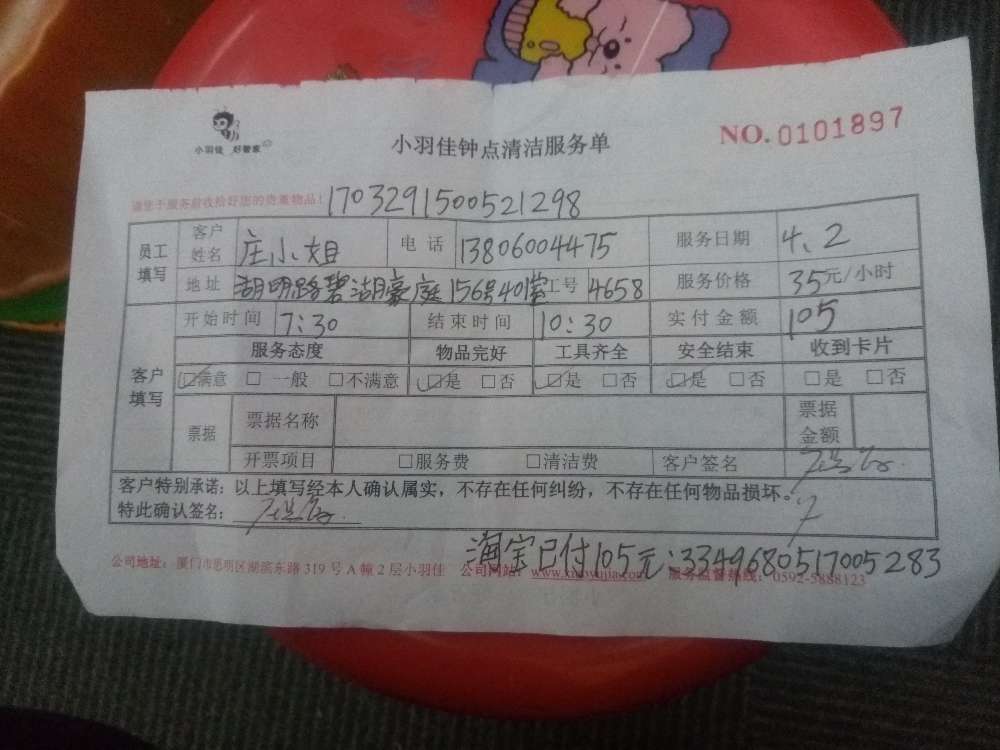 小羽佳 好管家
小羽佳钟点清洁服务单
NO.0101897
请您于服务前收拾好您的贵重物品!
1703291500521298
员工填写 客户姓名 庄小姐 电话 13806004475 服务日期 4、2
地址 湖明路碧湖豪庭156号40 工号 4658 服务价格 35元/小时
开始时间 7:30 结束时间 10:30 实付金额 105
客户填写 服务态度 物品完好 工具齐全 安全结束 收到卡片
☑满意 □一般 □不满意 ☑是 □否 ☑是 □否 ☑是 □否 □是 □否
票据 票据名称 票据金额
开票项目 □服务费 □清洁费 客户签名
客户特别承诺:以上填写经本人确认属实,不存在任何纠纷,不存在任何物品损坏。
特此确认签名:
淘宝已付105元:3349680517005283
公司地址:厦门市思明区湖滨东路319号A幢2层小羽佳 公司网站:www.xiaoyujia.com 服务监督热线:0592-5888123